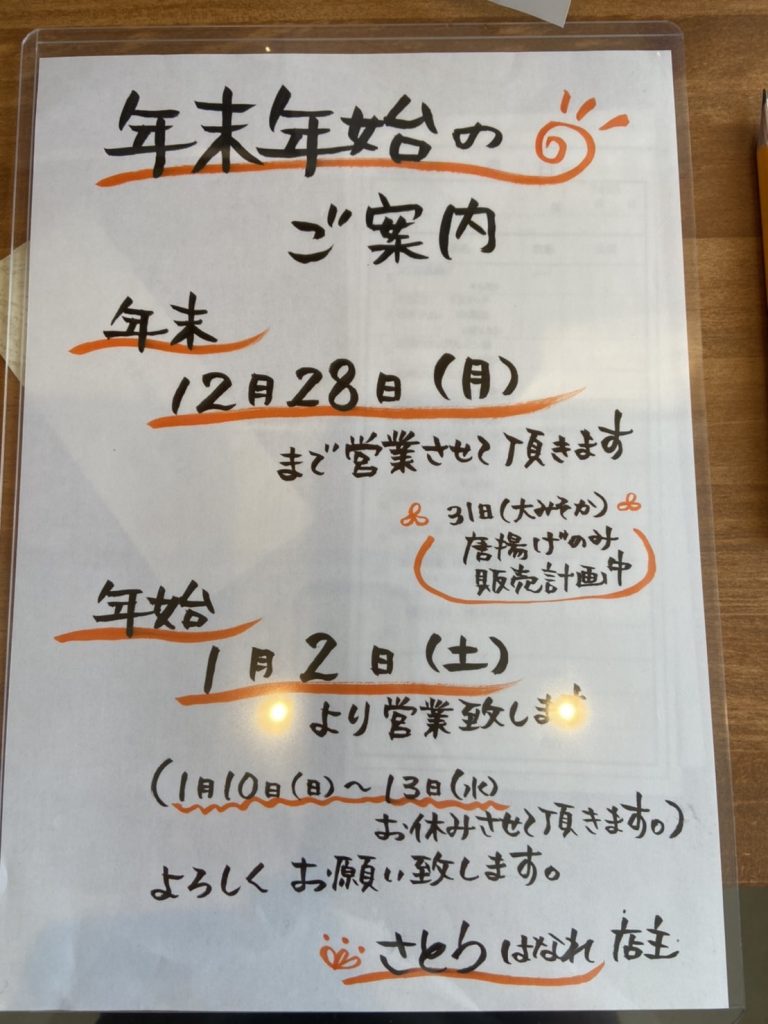 年末年始の
ご案内
年末
12月28日(月)
まで営業させて頂きます
31日(大みそか)
唐揚げのみ
販売計画中
年始
1月2日(土)
より営業致します
(1月10日(日)～13日(水)
お休みさせて頂きます。)
よろしくお願い致します。
さとりはなれ 店主